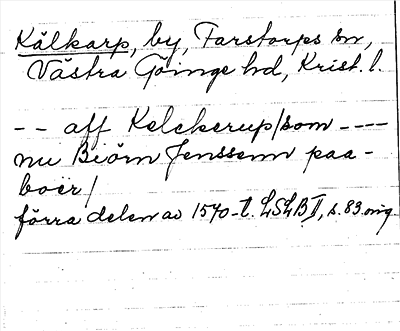 Kälkarp, by, Farstorps sn,
Västra Göinge hd, Krist. l.
-- aff Kelckerup/som ----
nu Biörn Jenssenn paa-
boer/
förra delen av 1570-t. LSLB II, s. 83. orig.